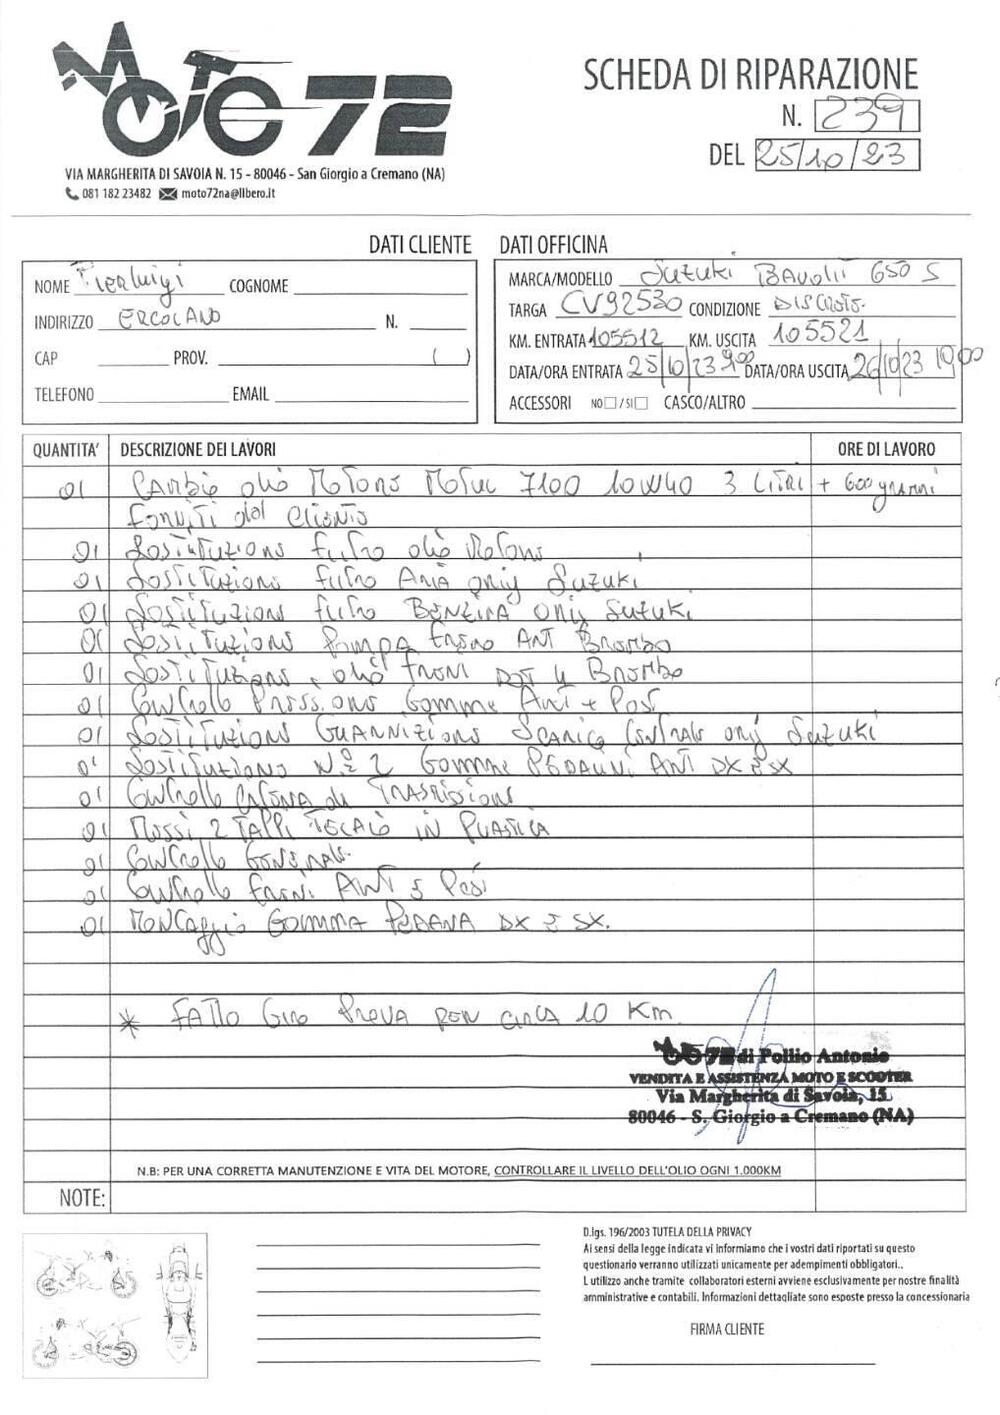 MOTO 72
SCHEDA DI RIPARAZIONE
N. 239
DEL 25/10/23
VIA MARGHERITA DI SAVOIA N. 15 - 80046 - San Giorgio a Cremano (NA)
081 182 23482 moto72na@libero.it
DATI CLIENTE
DATI OFFICINA
NOME Pierluigi COGNOME
INDIRIZZO ERCOLANO N.
CAP PROV. ( )
TELEFONO EMAIL
MARCA/MODELLO Suzuki 650 S
TARGA CV92530 CONDIZIONE
KM. ENTRATA 105512 KM. USCITA 105521
DATA/ORA ENTRATA 25/10/23 9,00 DATA/ORA USCITA 26/10/23 19,00
ACCESSORI NO / SI CASCO/ALTRO
QUANTITA' DESCRIZIONE DEI LAVORI ORE DI LAVORO
01 Cambio olio Motore Motul 7100 10W40 3 Litri + 600 grammi
Forniti dal Cliente
01 Sostituzione filtro olio Motore
01 Sostituzione filtro Aria orig Suzuki
01 Sostituzione filtro BENZINA orig Suzuki
01 Sostituzione Pompa freno ANT Brembo
01 Sostituzione olio Freni DOT 4 Brembo
01 Controllo Pressione Gomme Ant + Post
01 Sostituzione Guarnizione Scarico Centrale orig Suzuki
01 Sostituzione N.2 Gomme ANT DX E SX
01 Controllo Catena di Trasmissione
01 Messi 2 TAPPi TELAIO in PLASTICA
01 Controllo Generale
01 Controllo Freni ANT E Post
01 Montaggio GOMMA PEDANA DX E SX.
* FATTO Giro Prova PER CIRCA 10 Km
MOTO 72 di Pollio Antonio
VENDITA E ASSISTENZA MOTO E SCOOTER
Via Margherita di Savoia, 15
80046 - S. Giorgio a Cremano (NA)
N.B: PER UNA CORRETTA MANUTENZIONE E VITA DEL MOTORE, CONTROLLARE IL LIVELLO DELL'OLIO OGNI 1.000KM
NOTE:
D.lgs. 196/2003 TUTELA DELLA PRIVACY
Ai sensi della legge indicata vi informiamo che i vostri dati riportati su questo
questionario verranno utilizzati unicamente per adempimenti obbligatori..
L utilizzo anche tramite collaboratori esterni avviene esclusivamente per nostre finalità
amministrative e contabili. Informazioni dettagliate sono esposte presso la concessionaria
FIRMA CLIENTE